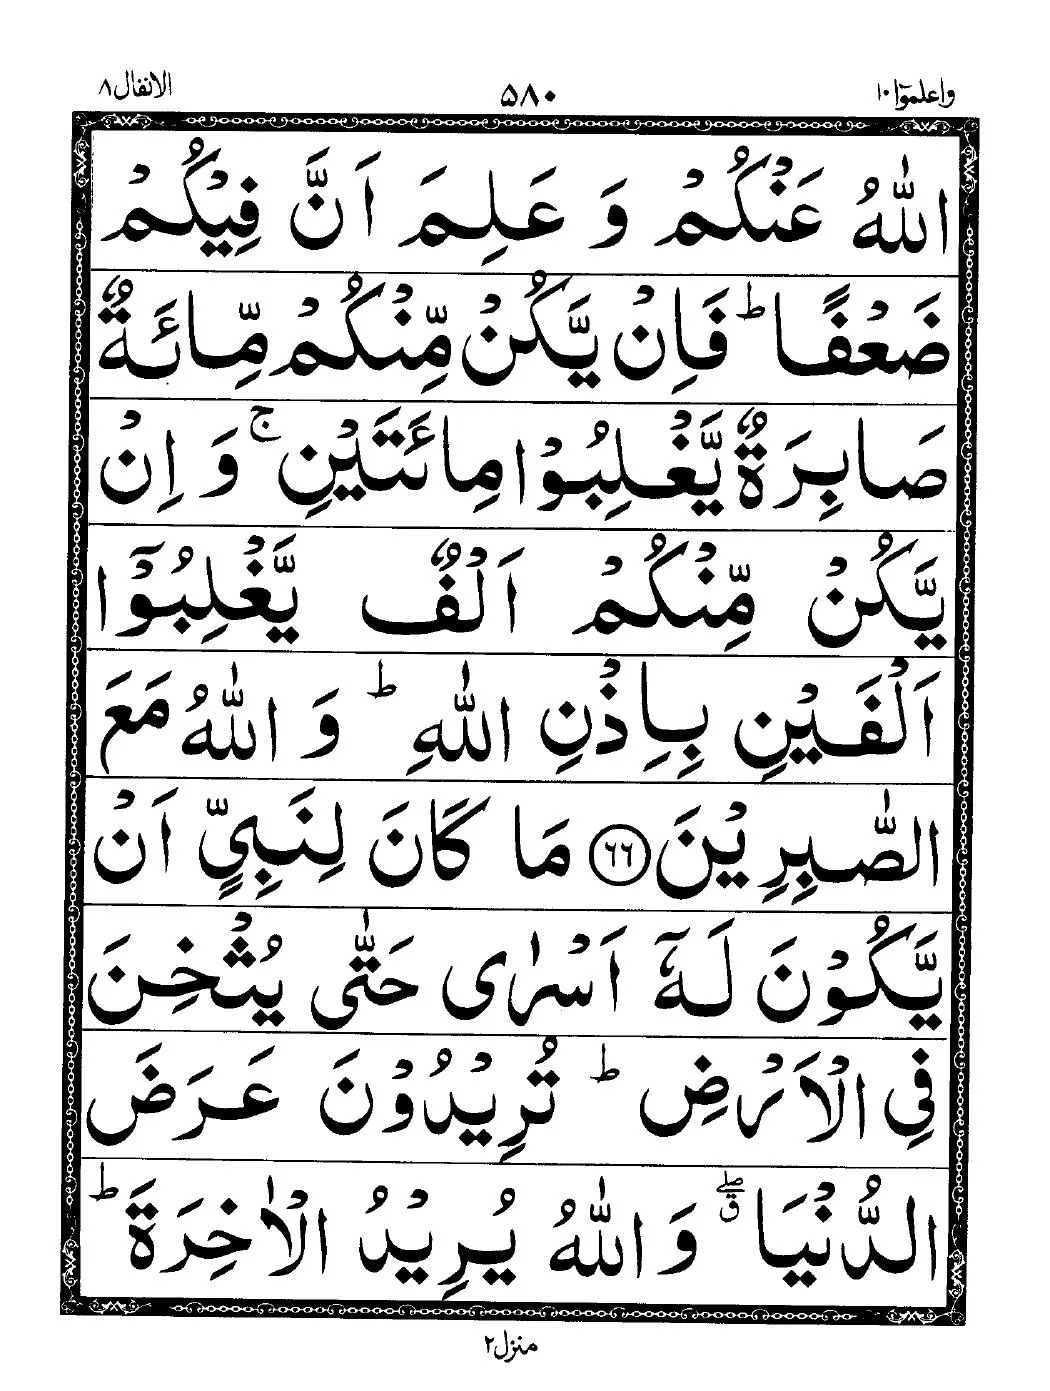 الانفال ٨ ٥٨٠ واعلموٓا ١٠
اللّٰهُ عَنْكُمْ وَ عَلِمَ اَنَّ فِيْكُمْ
ضَعْفًا ؕ فَاِنْ يَّكُنْ مِّنْكُمْ مِّائَةٌ
صَابِرَةٌ يَّغْلِبُوْا مِائَتَيْنِ ۚ وَ اِنْ
يَّكُنْ مِّنْكُمْ اَلْفٌ يَّغْلِبُوْۤا
اَلْفَيْنِ بِاِذْنِ اللّٰهِ ؕ وَ اللّٰهُ مَعَ
الصّٰبِرِيْنَ ﴿٦٦﴾ مَا كَانَ لِنَبِيٍّ اَنْ
يَّكُوْنَ لَهٗۤ اَسْرٰى حَتّٰى يُثْخِنَ
فِي الْاَرْضِ ؕ تُرِيْدُوْنَ عَرَضَ
الدُّنْيَا ۖۗ وَ اللّٰهُ يُرِيْدُ الْاٰخِرَةَ ؕ
منزل ٢